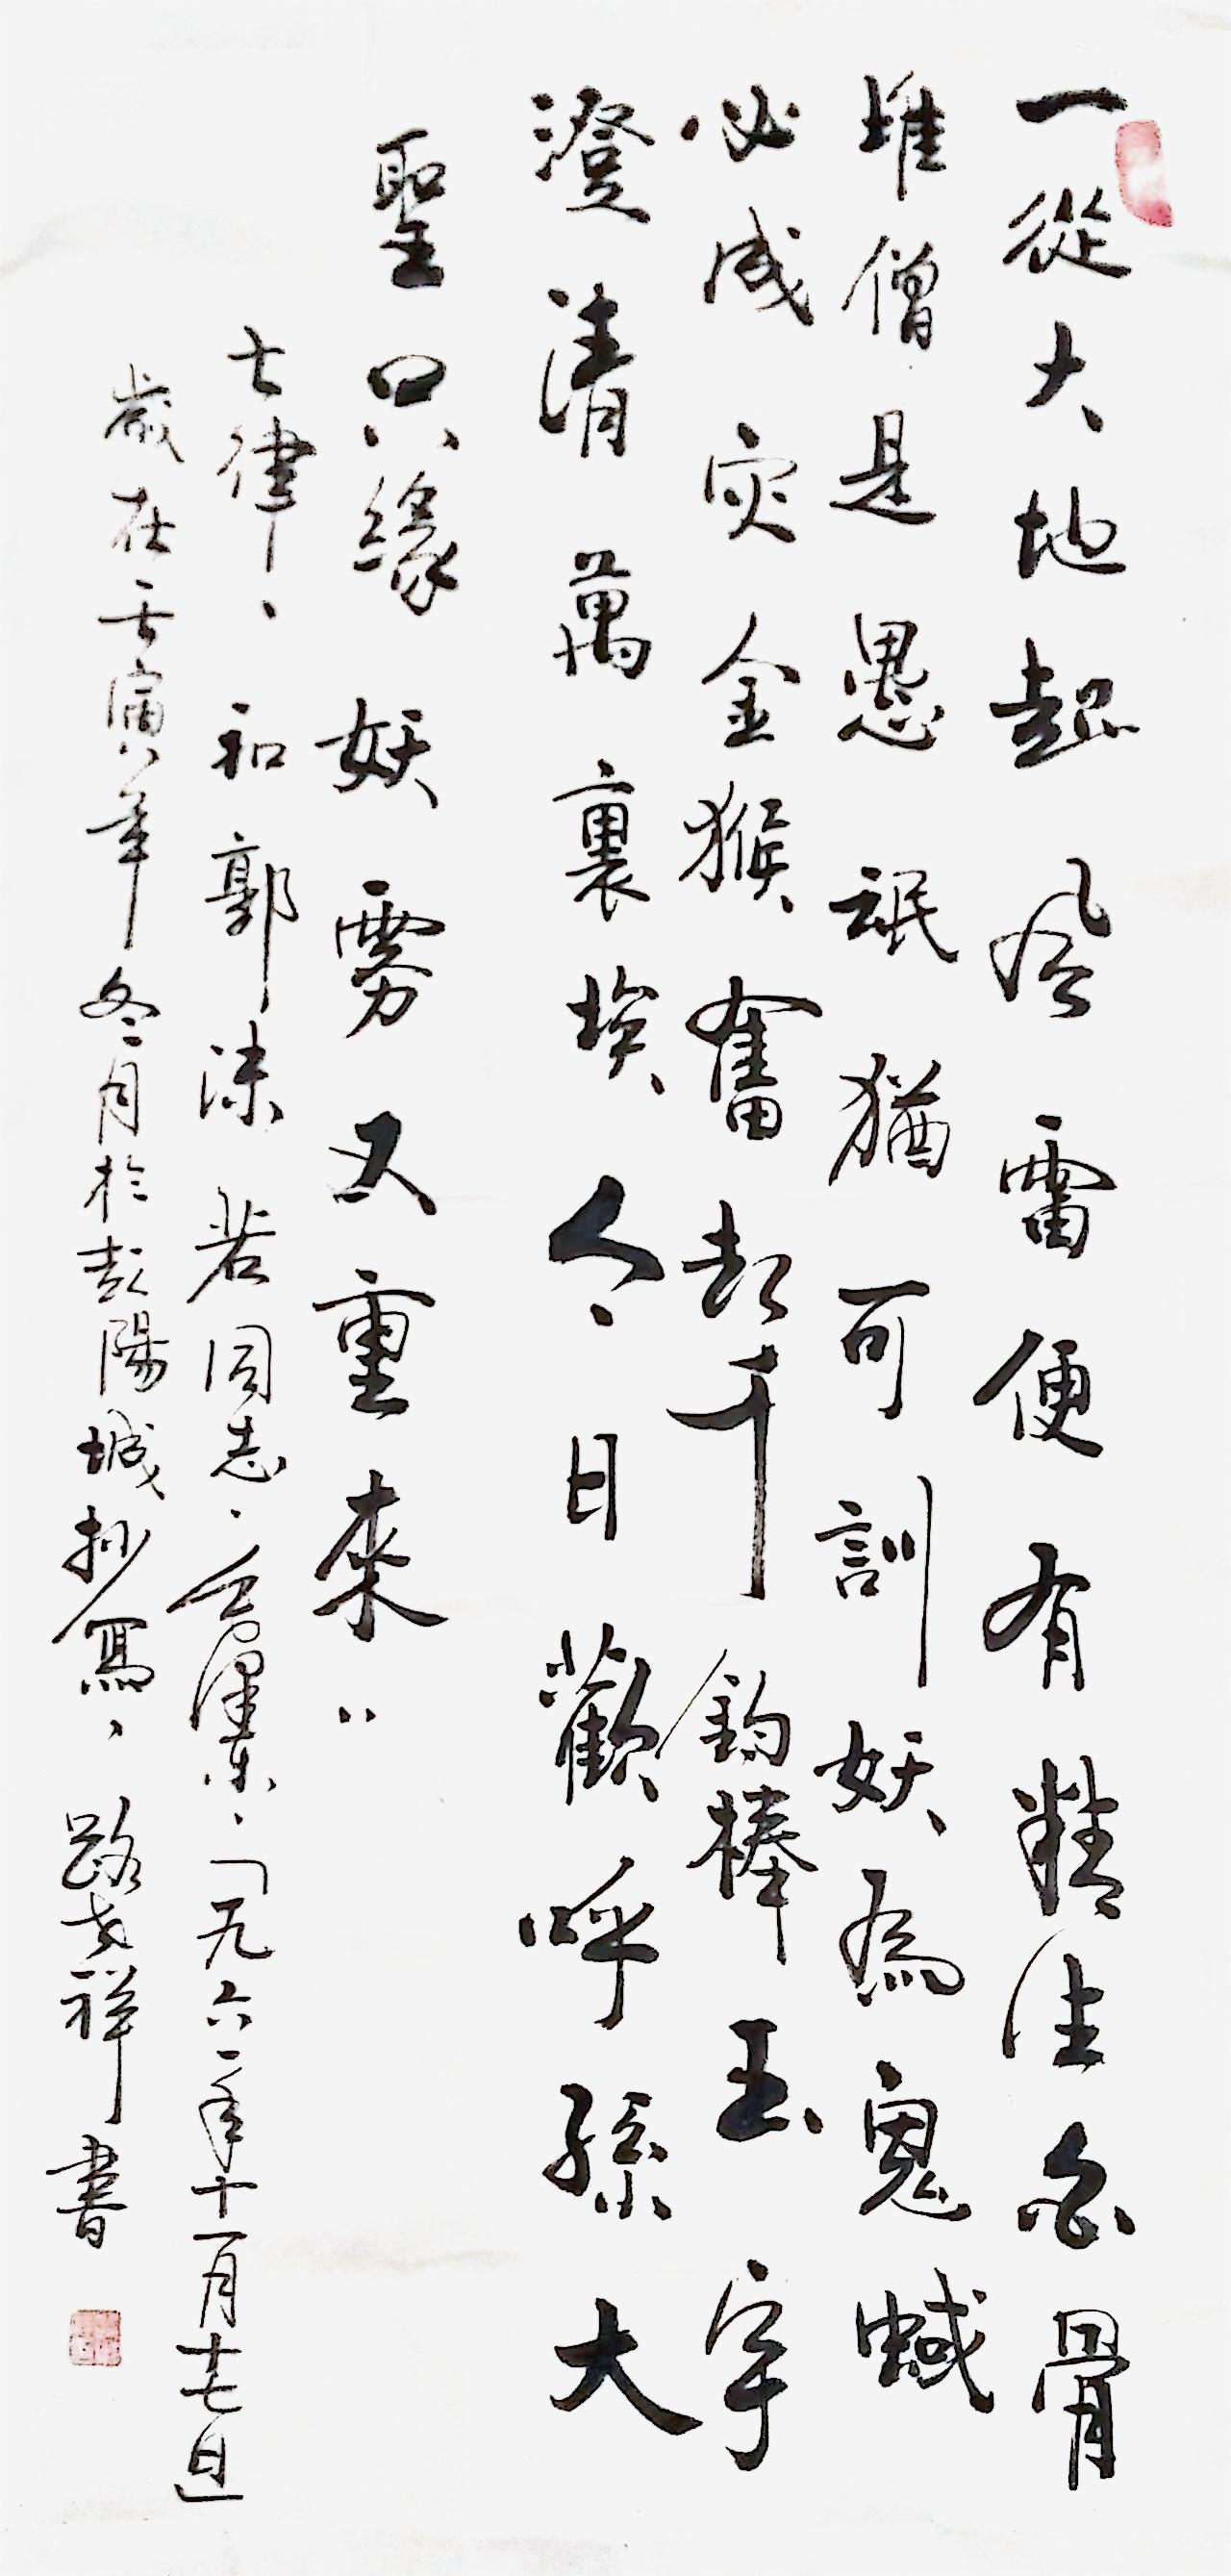 一從大地起風雷便有精生白骨
堆僧是愚氓猶可訓妖為鬼蜮
必成灾金猴奮起千鈞棒玉宇
澄清萬裏埃今日歡呼孫大
聖只緣妖霧又重來
七律、和郭沫若同志、毛澤東、「一九六一年十一月十七日」
歲在壬寅年冬月於彭陽城抄寫、路文祥書